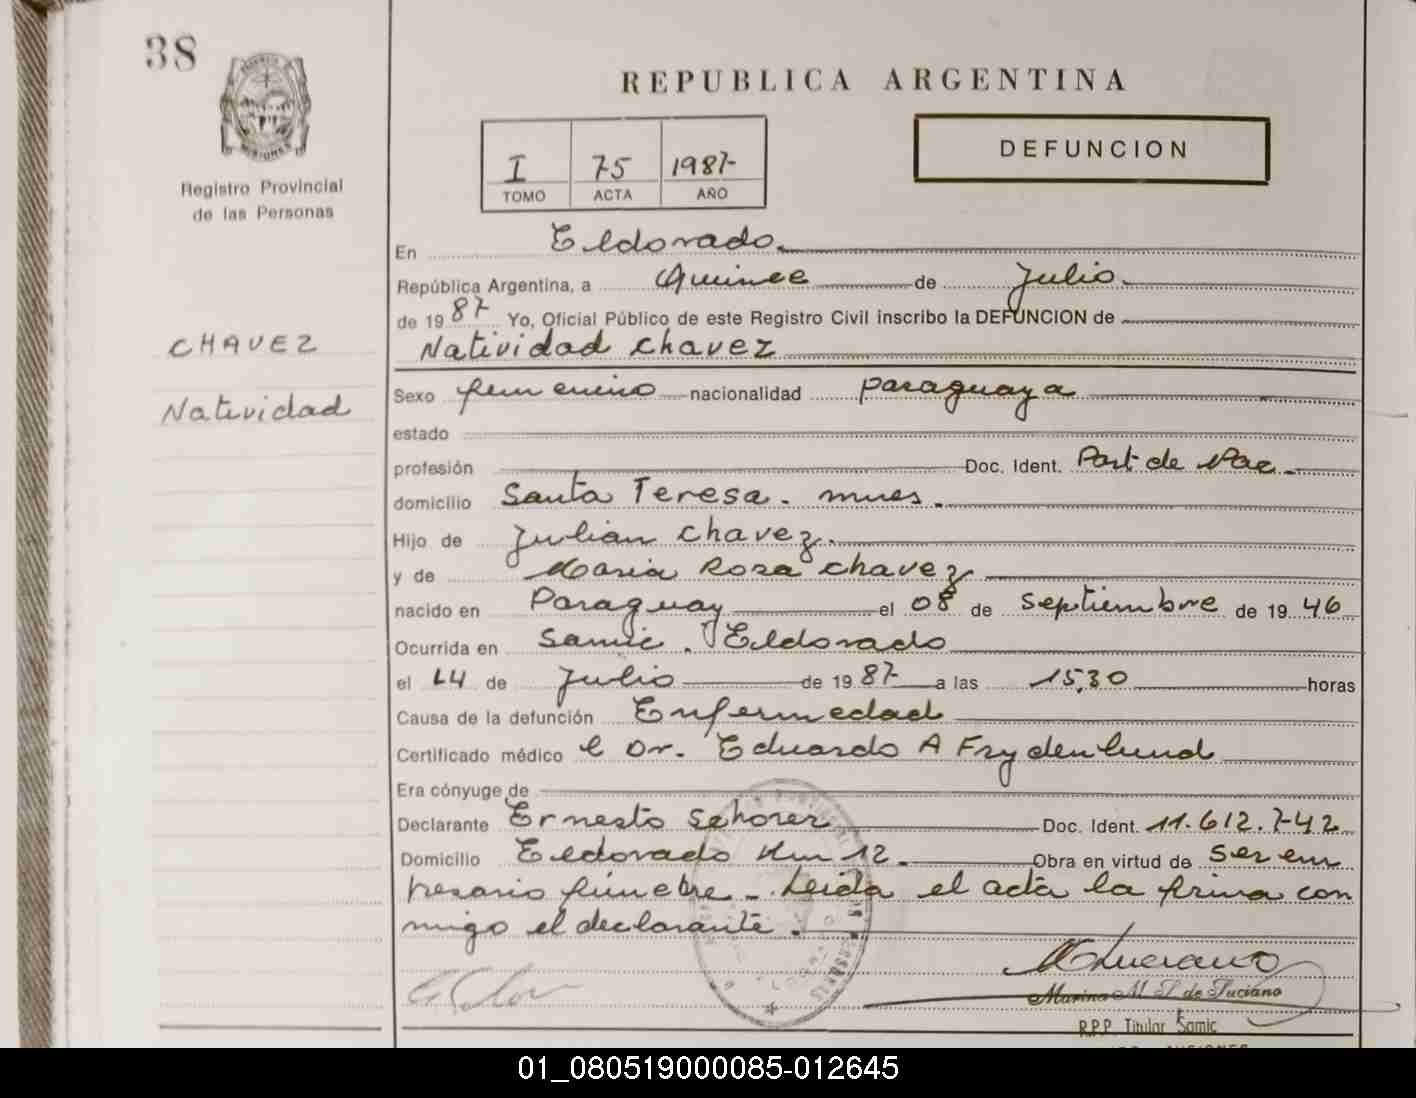 38
REPUBLICA ARGENTINA
I 75 1987-
TOMO ACTA AÑO
DEFUNCION
Registro Provincial
de las Personas
CHAVEZ
Natividad
En Eldorado.
República Argentina, a Quince de Julio.
de 1987 Yo, Oficial Público de este Registro Civil inscribo la DEFUNCION de
Natividad Chavez
Sexo femenino nacionalidad paraguaya
estado
profesión Doc. Ident. Part de Nac.
domicilio Santa Teresa. mnes.
Hijo de Julian Chavez.
y de Maria Rosa Chavez
nacido en Paraguay el 08 de septiembre de 1946
Ocurrida en Samic. Eldorado
el 14 de Julio de 1987 a las 15,30 horas
Causa de la defunción Enfermedad
Certificado médico el Dr. Eduardo A Frydenlund
Era cónyuge de
Declarante Ernesto Schorer Doc. Ident. 11.612.742
Domicilio Eldorado Km 12. Obra en virtud de ser em
presario fúnebre - Leida el acta la firma con
migo el declarante.
Marina M. S. de Luciano
R.P.P. Titular Samic
01_080519000085-012645